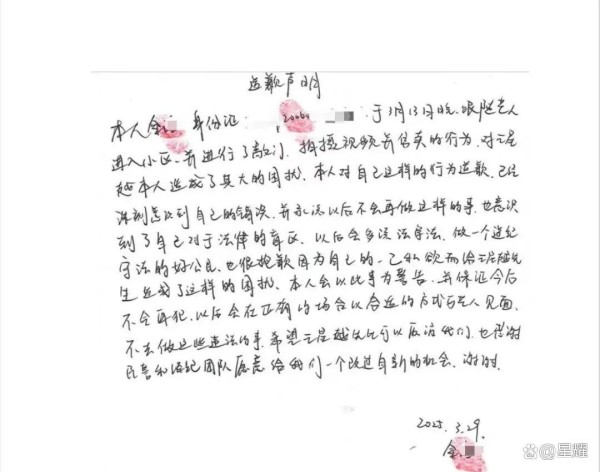 道歉声明
本人金 身份证 2006 于3月13日晚跟随艺人
进入小区，并进行了敲门，拍摄视频并售卖的行为，对
越本人造成了莫大的困扰。本人对自己这样的行为道歉，已经
深刻意识到自己的错误，并承诺以后不会再做这样的事，也意识
到了自己对于法律的盲区，以后会多读法守法，做一个遵纪
守法的好公民。也很抱歉因为自己的一己私欲而给 越先
生造成了这样的困扰，本人会以此事为警告，并保证今后
不会再犯，以后会在正确的场合以合适的方式与艺人见面，
不去做这些违法的事，希望 越先生可以原谅我们，也感谢
民警和经纪团队愿意给我们一个改过自新的机会，谢谢。
2025.3.29.
金
@星耀